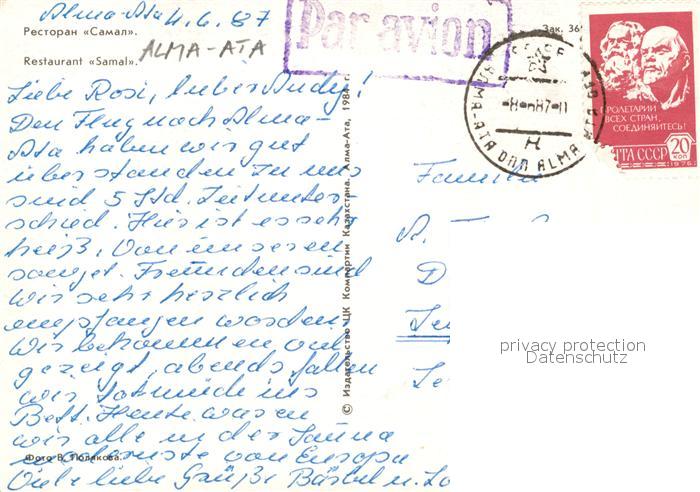 Alma-Ata 4.6.87
Ресторан «Самал».
Зак. 36
ALMA-ATA
Restaurant «Samal».
Par avion
Liebe Rosi, lieber Andy!
Den Flug nach Alma-
Ata haben wir gut
überstanden. Zu uns
sind 5 Std. Zeitunter-
schied. Hier ist es sehr
heiß. Von unseren
sowjet. Freunden sind
wir sehr herzlich
empfangen worden.
Wir bekommen viel
gezeigt, abends fallen
wir totmüde ins
Bett. Heute waren
wir alle in der Sauna
von Europa
Viele liebe Grüße Bärbel u. Lo
Фото В. Полякова.
© Издательство ЦК Компартии Казахстана. Алма-Ата, 1984 г.
АЛМА-АТА ДПП ALMA ATA
СССР
-8-6 87-11
ПРОЛЕТАРИИ
ВСЕХ СТРАН,
СОЕДИНЯЙТЕСЬ!
ПОЧТА СССР 20
КОП
1976
Familie
privacy protection
Datenschutz